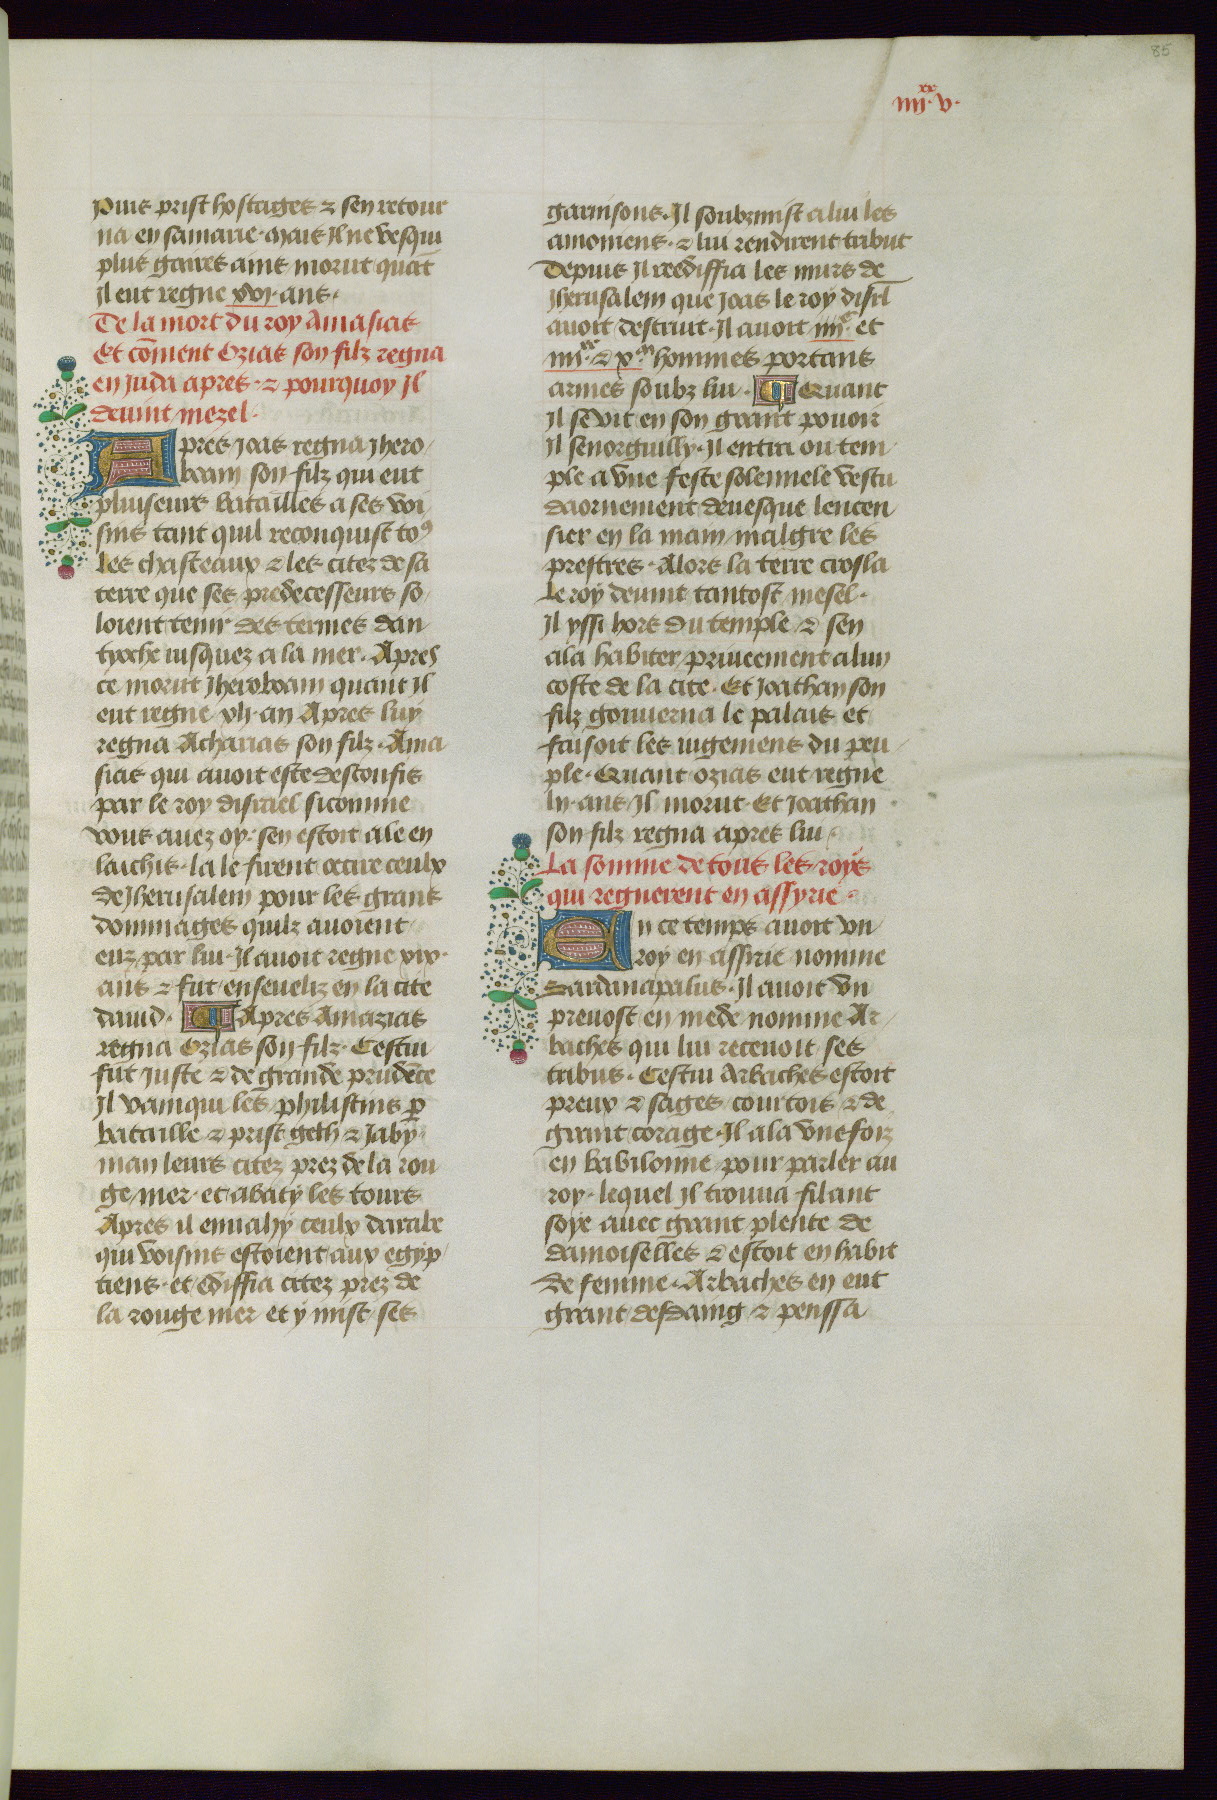 85
iiii.xx v.
Puis prist hostages & sen retour
na en samarie. Mais Il ne vesqui
plus gaires ains morut quāt
Il eut regne xvj. ans.
De la mort du roy Amasias
Et cōment Ozias son filz regna
en Juda apres. & pourquoy Il
devint mezel.
Apres Joas regna Jhero
boam son filz qui eut
pluiseurs batailles a ses voi
sins tant quil reconquist to9
les chasteaux & les citez de sa
terre que ses predecesseurs so
loient tenir des termes dan
tyoche iusquez a la mer. Apres
ce morut Jheroboam quant Il
eut regne xlj. an Apres luy
regna Acharias son filz. Ama
sias qui avoit este desconfis
par le roy disrael sicomme
vous avez oy. sen estoit ale en
laichis. la le firent occire ceulx
de Jherusalem pour les grans
dommages quilz avoient
euz par lui. Il avoit regne xix.
ans & fut enseveliz en la cite
david. Apres Amazias
regna Ozias son filz. Cestui
fut Juste & de grande prudēce
Il vainqui les philistins p
bataille & prist geth & Jaby
man leurs citez prez de la rou
ge mer. et abaty les tours
Apres il envahy ceulx darabe
qui voisins estoient aux egyp
tiens. et Ediffia citez prez de
la rouge mer et y mist ses
garnisons. Il soubzmist a lui les
amoniens. & lui rendirent tribut
Depuis Il reediffia les murs de
Jherusalem que Joas le roy disrl
avoit destruit. Il avoit iiii.c et
iiii.xx & x.m hommes portans
armes soubz lui. Quant
Il se vit en son grant povoir
Il senorguilly. Il entra ou tem
ple a vne feste solennele vestu
daornement devesque lencen
sier en la main malgre les
prestres. Alors la terre crosla
le roy devint tantost mesel.
Il yssi hors du temple & sen
ala habiter priveement a lun
coste de la cite. Et Joathan son
filz gouverna le palais et
faisoit les iugemens du peu
ple. Quant ozias eut regne
lij. ans Il morut. Et Joathan
son filz regna apres lui.
La somme de tous les roys
qui regnerent en assyrie.
En ce temps avoit vn
roy en assirie nomme
Sardanapalus. Il avoit vn
prevost en mede nomme Ar
baches qui lui recevoit ses
tribus. Cestui Arbaches estoit
preux & sages courtois & de
grant corage. Il ala vne foiz
en babilonne pour parler au
roy. lequel Il trouva filant
soye avec grant plente de
damoiselles & estoit en habit
de femme. Arbaches en eut
grant desdaing & penssa